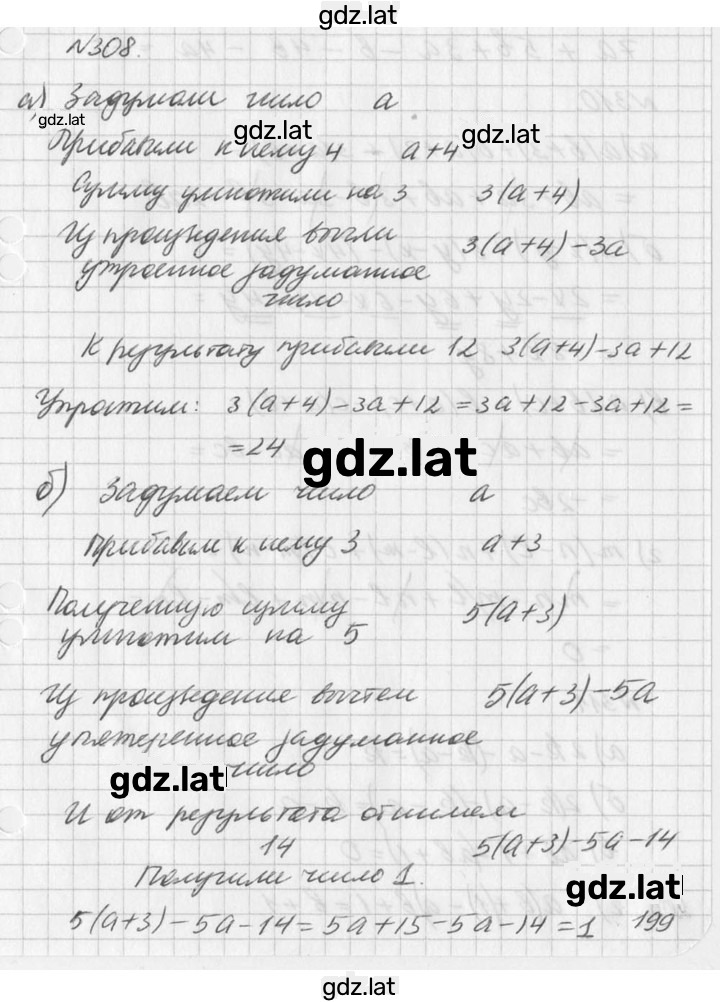 gdz.lat
N308.
а) Задумали число a
gdz.lat gdz.lat gdz.lat
Прибавили к нему 4 a+4
Сумму умножили на 3 3(a+4)
Из произведения вычли 3(a+4)-3a
утроенное задуманное
число
К результату прибавили 12 3(a+4)-3a+12
Упростим: 3(a+4)-3a+12=3a+12-3a+12=
=24
gdz.lat
б) Задумаем число a
Прибавим к нему 3 a+3
Полученную сумму 5(a+3)
умножим на 5
Из произведения вычтем 5(a+3)-5a
упятеренное задуманное
gdz.lat число
И от результата отнимем
14 5(a+3)-5a-14
Получили число 1.
gdz.lat
5(a+3)-5a-14=5a+15-5a-14=1 199
gdz.lat